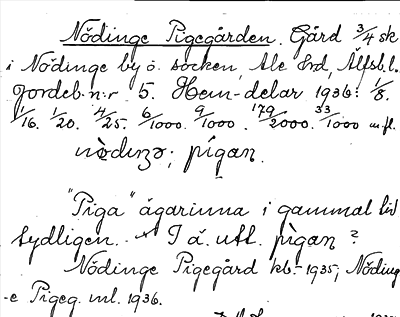 Nödinge Pigegården. Gård 3/4 sk
i Nödinge by ö. socken, Ale hrd, Älfsb. l.
Jordeb. n:r 5. Hem.-delar 1936: 1/8.
1/16. 1/20. 4/25. 6/1000. 9/1000. 179/2000. 33/1000 m fl.
nòdıŋə; pígan.
"Piga" ägarinna i gammal tid
tydligen. I ä. utt. pìgan?
Nödinge Pigegård kb.-1935; Nöding
-e Pigeg. ml. 1936.